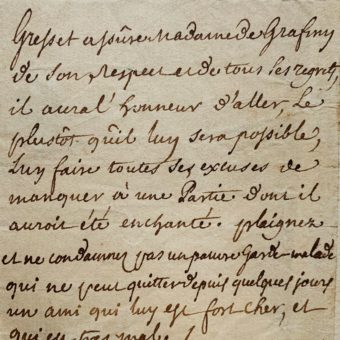 Gresset assûre Madame de Grafiny
de son respect et de tous ses regrets,
il aura l'honneur d'aller, Le
plustôt qu'il luy sera possible,
Luy faire toutes ses excuses de
manquer à une Partie dont il
auroit été enchanté. plaignez
et ne condamnez pas un pauvre Garde-malade
qui ne peut quitter depuis quelques jours
un ami qui luy est fort cher, et
qui est